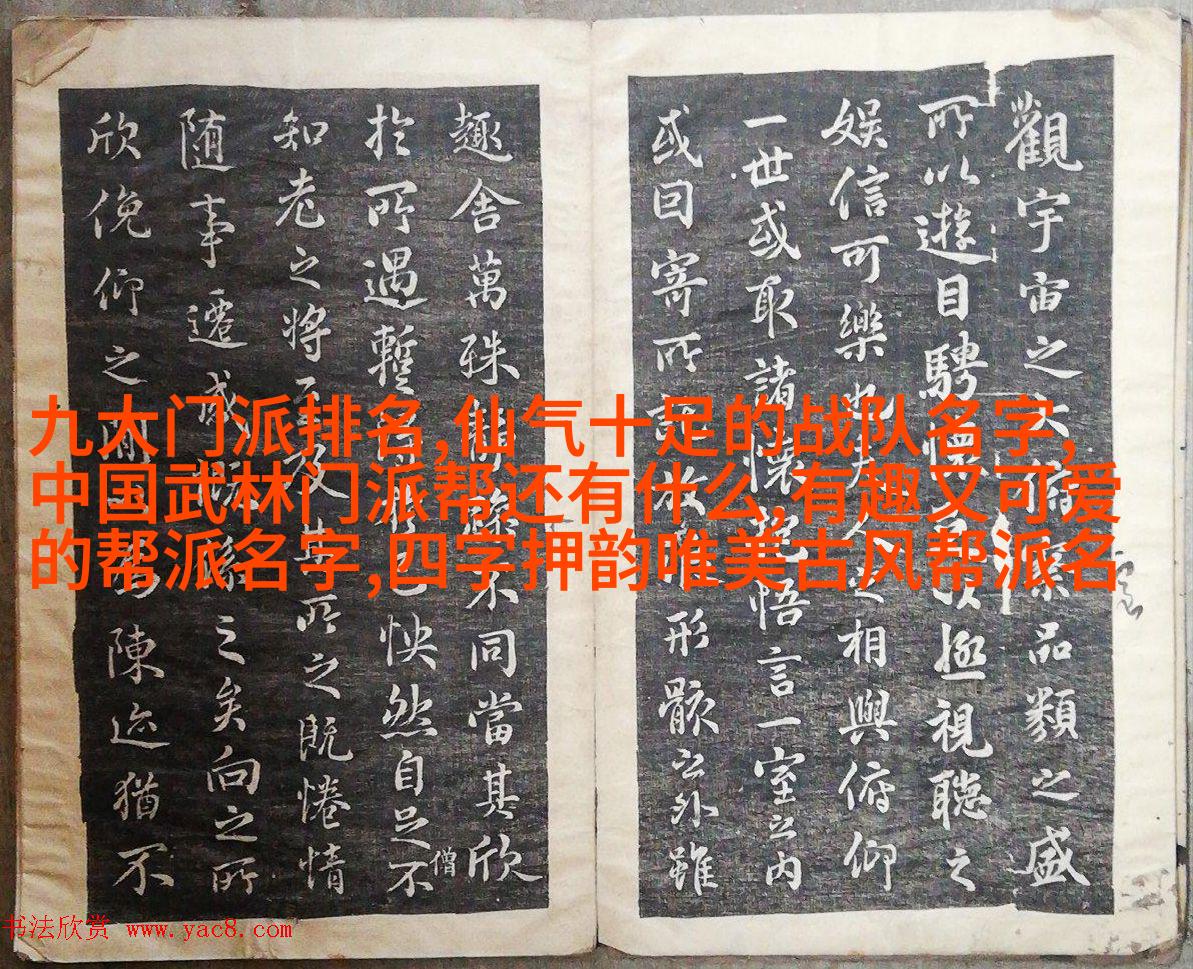 觀宇宙之大俯察品類之盛
所以遊目騁懷足以極視聽之
娛信可樂也夫人之相與俯仰
一世或取諸懷抱悟言一室之內
或因寄所託放浪形骸之外雖
趣舍萬殊靜躁不同當其欣
僧
於所遇暫得於己怏然自足不
知老之將至及其所之既惓情
随事遷感慨係之矣向之所
欣俛仰之間以為陳迹猶不
九大门派排名,仙气十足的战队名字,
中国武林门派帮还有什么,有趣又可爱
的帮派名字,四字押韵唯美古风帮派名
书法欣赏 www.yac8.com